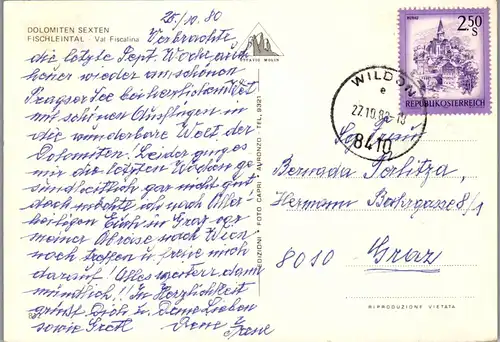 25./10. 80
DOLOMITEN SEXTEN
FISCHLEINTAL - Val Fiscalina
Verbrachte
die letzte Sept. Woche auch
heuer wieder am schönen
Pragser See bei herrlichem Wet
mit schönen Ausflügen in
die wunderbare Welt der
Dolomiten! Leider ging es
mir die letzten Wochen ge-
sundheitlich gar nicht gut
doch möchte ich nach Aller-
heiligen Euch in Graz vor
meiner Abreise nach Wien
noch treffen u freue mich
darauf! Alles weitere dann
mündlich!! In Herzlichkeit
grüsst Dich u Deine Lieben
sowie Gretl
Irene
EDIZIONI - FOTO CAPRI - AURONZO - TEL. 9321
MURAU
2.50
S
REPUBLIK ÖSTERREICH
WILDON
e
27.10.80-18
8410
Bernada
Hermann Bahrgasse 8/1
8010 Graz
RIPRODUZIONE VIETATA